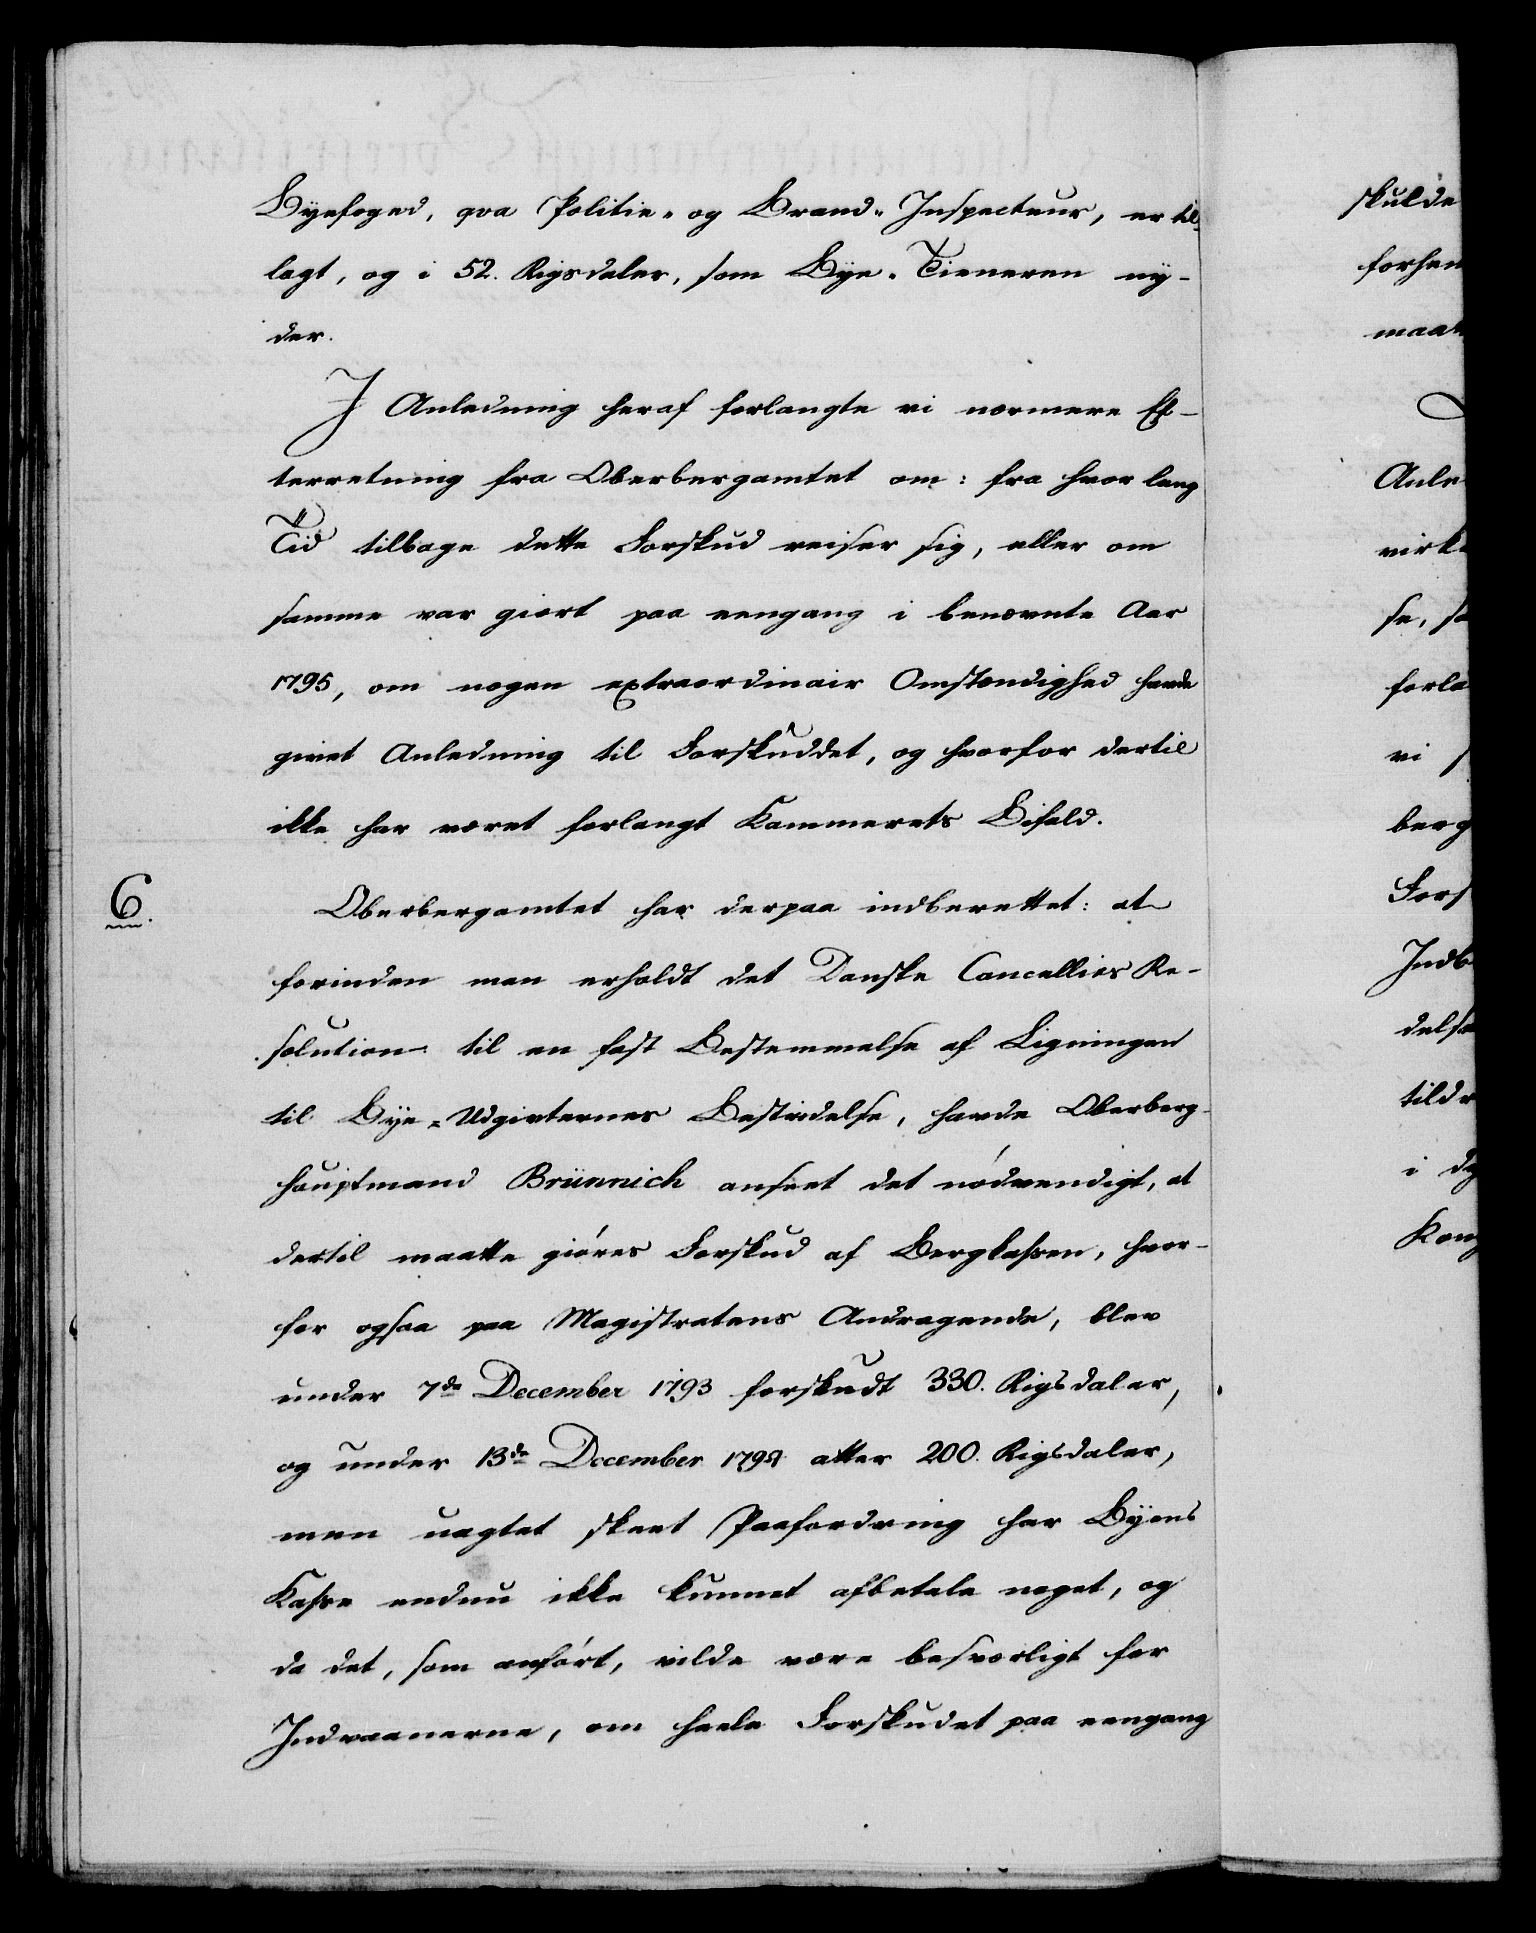 Byefoged, qva Politie- og Brand-Inspecteur, er til-
lagt, og i 52. Rigsdaler, som Bye-Tieneren ny-
der.
I Anledning heraf forlangte vi nærmere Ef-
terretning fra Oberbergamtet om: fra hvor lang
Tid tilbage dette Forskud reiser sig, eller om
samme var giort paa eengang i benævnte Aar
1795, om nogen extraordinair Omstændighed havde
givet Anledning til Forskuddet, og hvorfor dertil
ikke har været forlangt Kammerets Bifald.
6.
Oberbergamtet har derpaa indberettet: at
forinden man erholdt det Danske Cancellies Re-
solution til en fast Bestemmelse af Ligningen
til Bye-Udgivternes Bestridelse, havde Oberberg-
hauptmand Brünnich anseet det nödvendigt, at
dertil maatte giöres Forskud af Bergkassen, hvor-
for ogsaa paa Magistratens Andragende, blev
under 7de December 1793 forskudt 330. Rigsdaler,
og under 13de December atter 200. Rigsdaler,
men uagtet skeet Paafordring har Byens
Kasse endnu ikke kunnet afbetale noget, og
da det, som anfört, vilde være besværligt for
Indvaanerne, om heele Forskudet paa eengang
skulde
forhen
maat
Anle
virk
se, sa
forla
vi
berg
Fors
Indb
delse
tildr
i
Kong